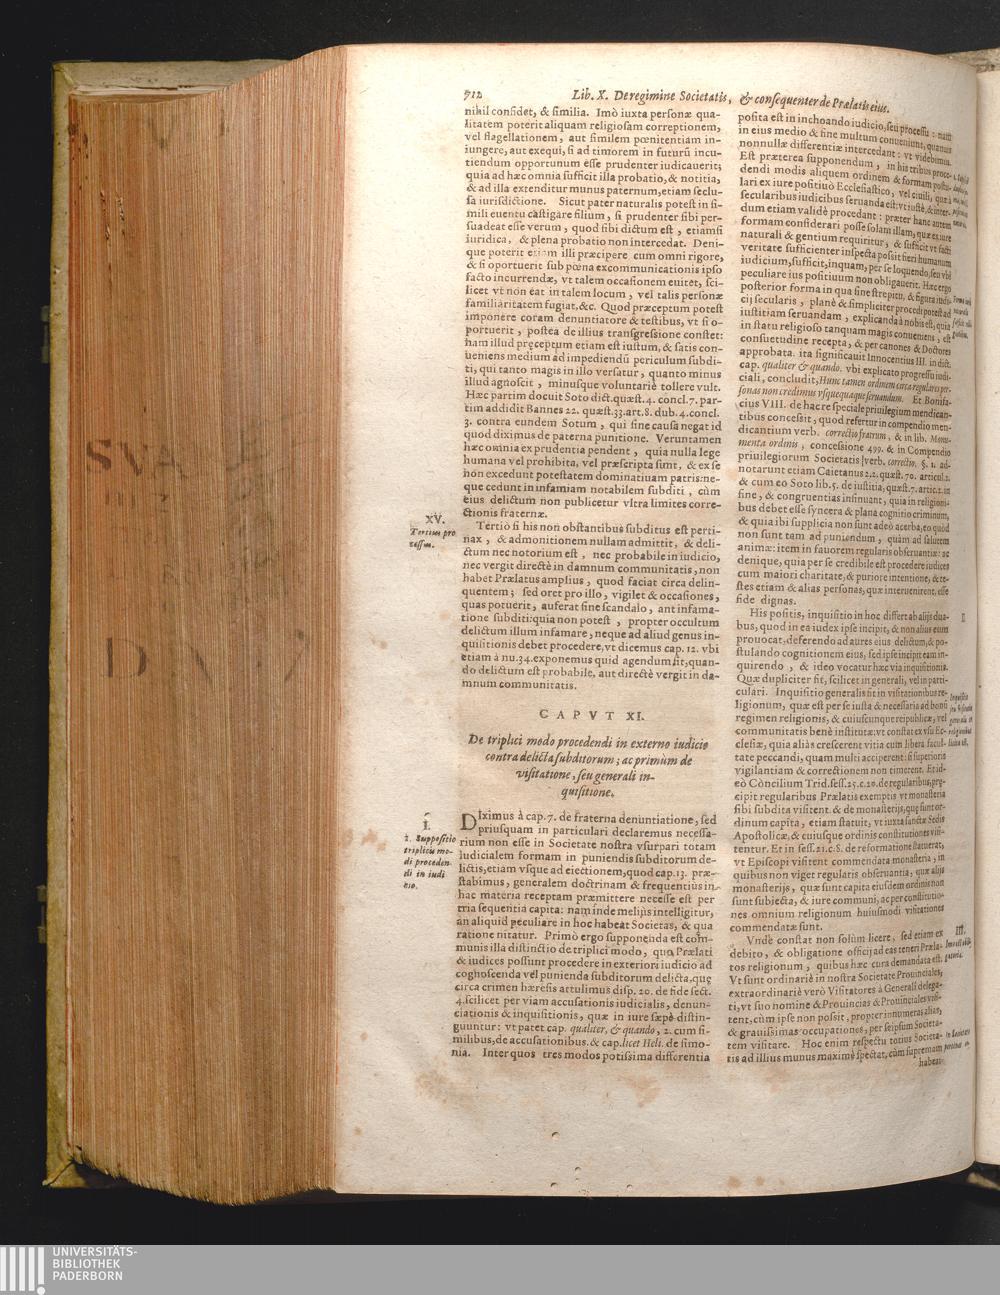 712 Lib. X. De regimine Societatis, & consequenter de Prælatis eius.
nihil confidet, & similia. Imò iuxta personæ qua-
litatem poterit aliquam religiosam correptionem,
vel flagellationem, aut similem pœnitentiam in-
iungere, aut exequi, si ad timorem in futurũ incu-
tiendum opportunum esse prudenter iudicauerit;
quia ad hæc omnia sufficit illa probatio, & notitia,
& ad illa extenditur munus paternum, etiam seclu-
sa iurisdictione. Sicut pater naturalis potest in si-
mili euentu castigare filium, si prudenter sibi per-
suadeat esse verum, quod sibi dictum est, etiamsi
iuridica, & plena probatio non intercedat. Deni-
que poterit etiam illi præcipere cum omni rigore,
& si oportuerit sub pœna excommunicationis ipso
facto incurrendæ, vt talem occasionem euitet, sci-
licet vt non eat in talem locum, vel talis personæ
familiaritatem fugiat, &c. Quod præceptum potest
imponere coram denuntiatore & testibus, vt si o-
portuerit, postea de illius transgressione constet:
nam illud pręceptum etiam est iustum, & satis con-
ueniens medium ad impediendũ periculum subdi-
ti, qui tanto magis in illo versatur, quanto minus
illud agnoscit, minusque voluntariè tollere vult.
Hæc partim docuit Soto dict. quæst. 4. concl. 7. par-
tim addidit Bannes 22. quæst. 33. art. 8. dub. 4. concl.
3. contra eundem Sotum, qui sine causa negat id
quod diximus de paterna punitione. Veruntamen
hæc omnia ex prudentia pendent, quia nulla lege
humana vel prohibita, vel præscripta sunt, & ex se
non excedunt potestatem dominatiuam patris: ne-
que cedunt in infamiam notabilem subditi, cùm
eius delictum non publicetur vltra limites corre-
ctionis fraternæ.
XV.
Tertius pro
cessus.
Tertiò si his non obstantibus subditus est perti-
nax, & admonitionem nullam admittit, & deli-
ctum nec notorium est, nec probabile in iudicio,
nec vergit directè in damnum communitatis, non
habet Prælatus amplius, quod faciat circa delin-
quentem; sed oret pro illo, vigilet & occasiones,
quas potuerit, auferat sine scandalo, aut infama-
tione subditi: quia non potest, propter occultum
delictum illum infamare, neque ad aliud genus in-
quisitionis debet procedere, vt dicemus cap. 12. vbi
etiam à nu. 34. exponemus quid agendum sit, quan-
do delictum est probabile, aut directè vergit in da-
mnum communitatis.
CAPVT XI.
De triplici modo procedendi in externo iudicio
contra delicta subditorum; ac primùm de
visitatione, seu generali in-
quisitione.
I.
1. Suppositio
triplicis mo-
di proceden-
di in iudi
cio.
DIximus à cap. 7. de fraterna denuntiatione, sed
priusquam in particulari declaremus necessa-
rium non esse in Societate nostra vsurpari totam
iudicialem formam in puniendis subditorum de-
lictis, etiam vsque ad eiectionem, quod cap. 13. præ-
stabimus, generalem doctrinam & frequentiùs in
hac materia receptam præmittere necesse est per
tria sequentia capita: nam inde meliùs intelligitur,
an aliquid peculiare in hoc habeat Societas, & qua
ratione nitatur. Primò ergo supponenda est com-
munis illa distinctio de triplici modo, quo Prælati
& iudices possunt procedere in exteriori iudicio ad
coghoscenda vel punienda subditorum delicta, quę
circa crimen hæresis attulimus disp. 20. de fide sect.
4. scilicet per viam accusationis iudicialis, denun-
ciationis & inquisitionis, quæ in iure sæpè distin-
guuntur: vt patet cap. qualiter, & quando, 2. cum si-
milibus, de accusationibus. & cap. licet Heli. de simo-
nia. Inter quos tres modos potissima differentia
posita est in inchoando iudicio, seu processu: nam
in eius medio & fine multum conueniunt, quamuis
nonnullæ differentiæ intercedant: vt videbimus.
Est præterea supponendum, in his tribus proce-
dendi modis aliquem ordinem & formam postu-
lari ex iure positiuo Ecclesiastico, vel ciuili, quæ à
secularibus iudicibus seruanda est: vt iustè, & inter-
dum etiam validè procedant: præter hanc autem
formam considerari posse solam illam, quæ ex iure
naturali & gentium requiritur, & sufficit vt facti
veritate sufficienter inspecta possit fieri humanum
iudicium, sufficit, inquam, per se loquendo, seu vbi
peculiare ius positiuum non obligauerit. Hæc ergo
posterior forma in qua sine strepitu, & figura iudi-
cij secularis, planè & simpliciter procedi potest ad
iustitiam seruandam, explicanda à nobis est, quia
in statu religioso tanquam magis conueniens, est
consuetudine recepta, & per canones & Doctores
approbata. ita significauit Innocentius III. in dict.
cap. qualiter & quando. vbi explicato progressu iudi-
ciali, concludit, Hunc tamen ordinem circa regulares per-
sonas non credimus vsquequaque seruandum. Et Bonifa-
cius VIII. de hac re speciale priuilegium mendican-
tibus concessit, quod refertur in compendio men-
dicantium verb. correctio fratrum, & in lib. Monu-
menta ordinis, concessione 499. & in Compendio
priuilegiorum Societatis verb. correctio, §. 1. ad-
notarunt etiam Caietanus 2.2. quæst. 70. articul. 2.
& cum eo Soto lib. 5. de iustitia, quæst. 7. artic. 2. in
fine, & congruentias insinuant, quia in religioni-
bus debet esse syncera & plana cognitio criminum,
& quia ibi supplicia non sunt adeò acerba, eo quòd
non sunt tam ad puniendum, quàm ad salutem
animæ: item in fauorem regularis obseruantiæ: ac
denique, quia per se credibile est procedere iudices
cum maiori charitate, & puriore intentione, & te-
stes etiam & alias personas, quæ interuenirent, esse
fide dignas.
II
His positis, inquisitio in hoc differt ab alijs dua-
bus, quod in ea iudex ipse incipit, & non alius eum
prouocat, deferendo ad aures eius delictum, & po-
stulando cognitionem eius, sed ipse incipit eam in-
quirendo, & ideo vocatur hæc via inquisitionis.
Quæ dupliciter fit, scilicet in generali, vel in parti-
culari. Inquisitio generalis fit in visitationibus re-
ligionum, quæ est per se iusta & necessaria ad bonũ
regimen religionis, & cuiuscunque reipublicæ, vel
communitatis benè institutæ: vt constat ex vsu Ec-
clesiæ, quia aliàs crescerent vitia cum libera facul-
tate peccandi, quam multi acciperent: si superioris
vigilantiam & correctionem non timerent. Et id-
eò Còncilium Trid. sess. 25. c. 20. de regularibus, prę-
cipit regularibus Prælatis exemptis vt monasteria
sibi subdita visitent. & de monasterijs, quę sunt or-
dinum capita, etiam statuit, vt iuxta sanctæ Sedis
Apostolicæ, & cuiusque ordinis constitutiones visi-
tentur. Et in sess. 21. c. 8. de reformatione statuerat,
vt Episcopi visitent commendata monasteria, in
quibus non viget regularis obseruantia, quæ alijs
monasterijs, quæ sunt capita eiusdem ordinis non
sunt subiecta, & iure communi, ac per constitutio-
nes omnium religionum huiusmodi visitationes
commendatæ sunt.
III.
Vnde constat non solùm licere, sed etiam ex
debito, & obligatione officij ad eas teneri Præla-
tos religionum, quibus hæc cura demandata est.
Vt sunt ordinariè in nostra Societate Prouinciales,
extraordinariè verò Visitatores à Generali delega-
ti, vt suo nomine & Prouincias & Prouinciales visi-
tent, cùm ipse non possit, propter innumeras alias,
& grauissimas occupationes, per seipsum Societa-
tem visitare. Hoc enim respectu totius Societa-
tis ad illius munus maximè spectat, cùm supremam
habeat
UNIVERSITÄTS-
BIBLIOTHEK
PADERBORN